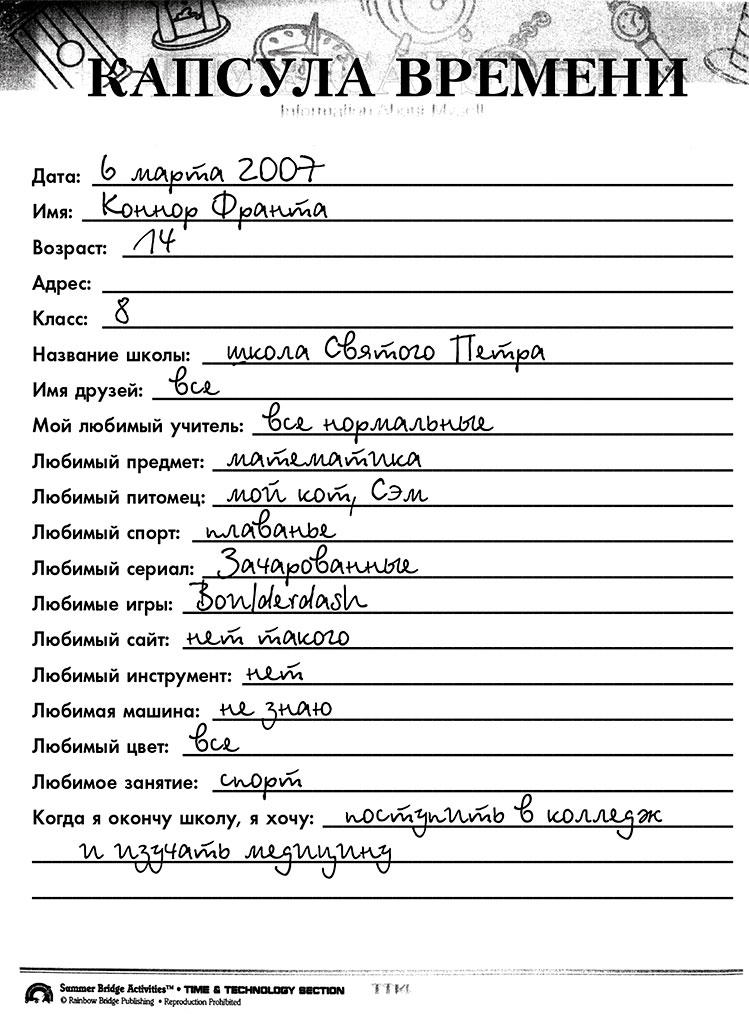 КАПСУЛА ВРЕМЕНИ
Information About Myself
Дата: 6 марта 2007
Имя: Коннор Франта
Возраст: 14
Адрес:
Класс: 8
Название школы: школа Святого Петра
Имя друзей: все
Мой любимый учитель: все нормальные
Любимый предмет: математика
Любимый питомец: мой кот, Сэм
Любимый спорт: плаванье
Любимый сериал: Зачарованные
Любимые игры: Bonlderdash
Любимый сайт: нет такого
Любимый инструмент: нет
Любимая машина: не знаю
Любимый цвет: все
Любимое занятие: спорт
Когда я окончу школу, я хочу: поступить в колледж
и изучать медицину
Summer Bridge Activities™ • TIME & TECHNOLOGY SECTION
© Rainbow Bridge Publishing • Reproduction Prohibited